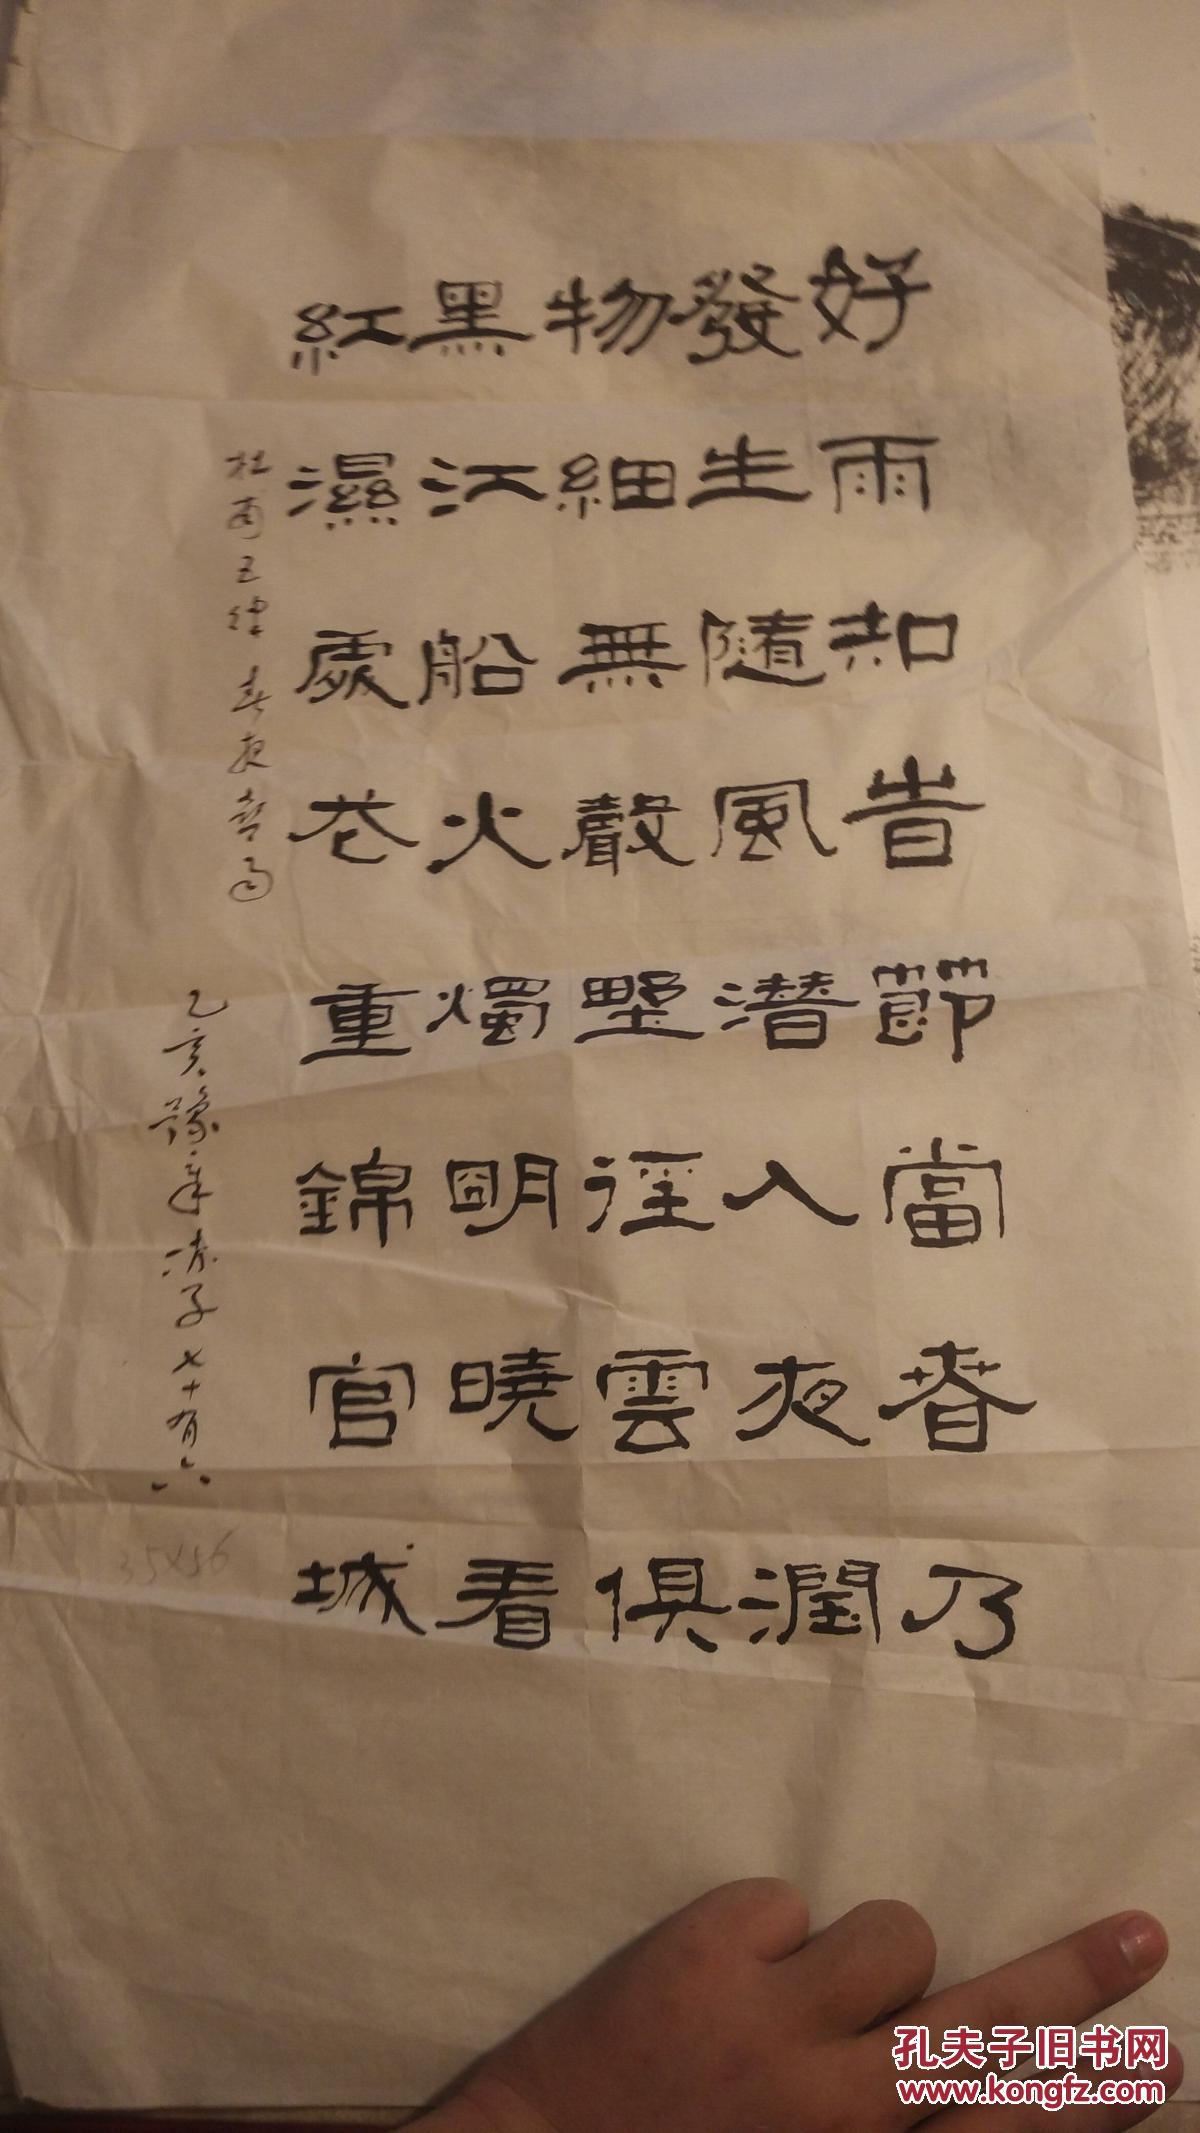 好雨知旹節當春乃
發生隨風潛入夜潤
物細無聲野徑雲俱
黑江船火燭明曉看
紅濕處花重錦官城
杜甫五律春夜喜雨
乙亥豫章子七十有六
35X56
孔夫子旧书网
www.kongfz.com